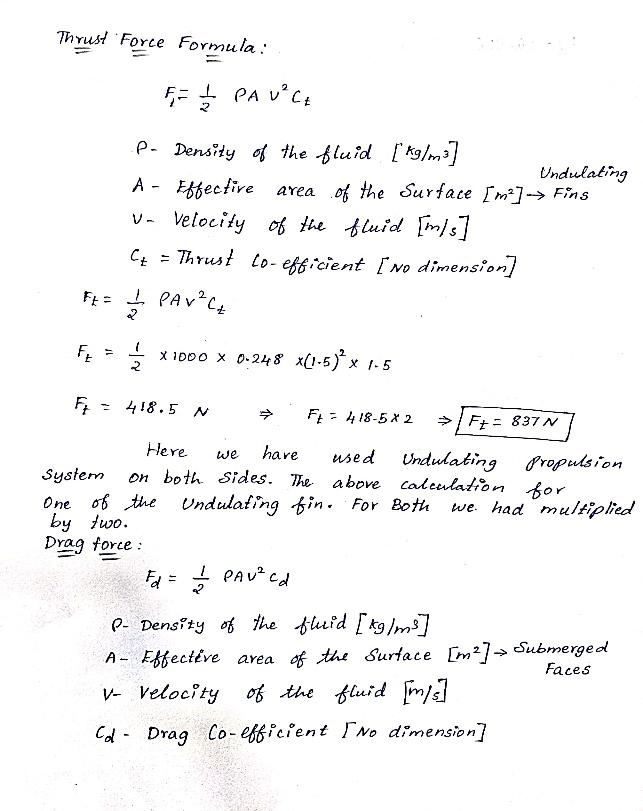 Thrust Force Formula :
Ft = 1/2 ρA v² Ct
ρ - Density of the fluid [kg/m³]
A - Effective area of the Surface [m²] → Undulating Fins
v - Velocity of the fluid [m/s]
Ct = Thrust Co-efficient [No dimension]
Ft = 1/2 ρAv²Ct
Ft = 1/2 x 1000 x 0.248 x(1.5)² x 1.5
Ft = 418.5 N ⇒ Ft = 418.5 x 2 ⇒ Ft = 837 N
Here we have used Undulating Propulsion
System on both Sides. The above calculation for
One of the Undulating fin. For Both we had multiplied
by two.
Drag force :
Fd = 1/2 ρAv² Cd
ρ- Density of the fluid [kg/m³]
A- Effective area of the Surface [m²] → Submerged Faces
V- Velocity of the fluid [m/s]
Cd - Drag Co-efficient [No dimension]